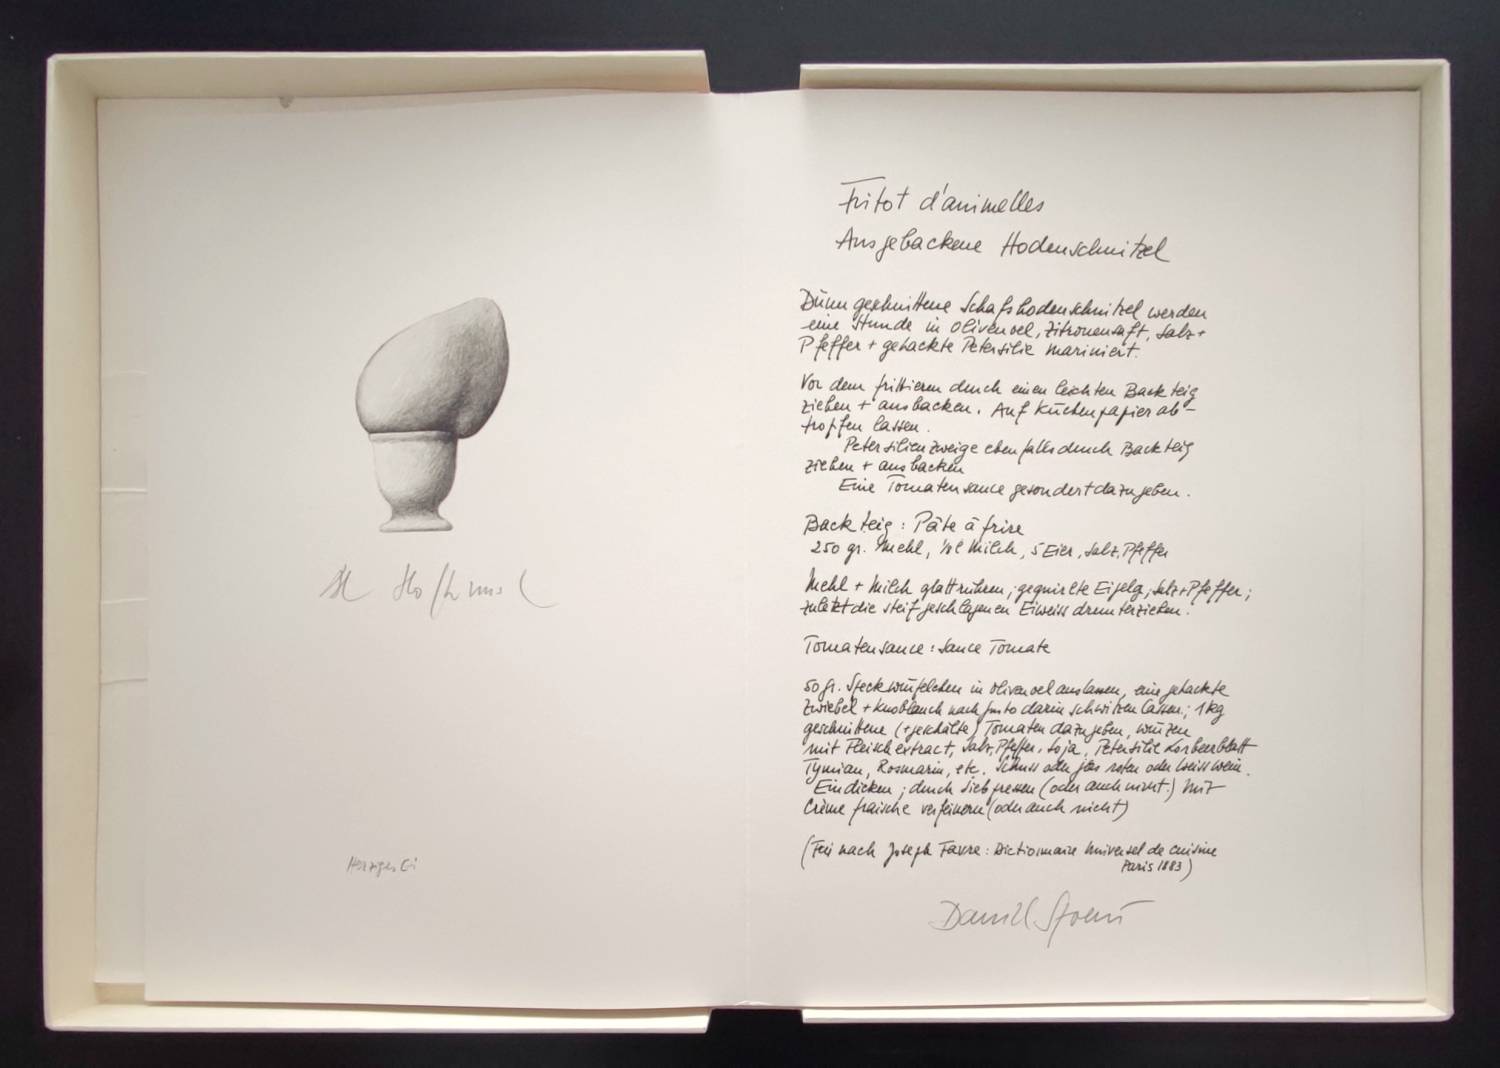 Herziges Ei
Fritot d'animelles
Ausgebackene Hodenschnitzel
Dünn geschnittene Schafshodenschnitzel werden
eine Stunde in Olivenoel, Zitronensaft, Salz +
Pfeffer + gehackte Petersilie mariniert.
Vor dem frittieren durch einen leichten Backteig
ziehen + ausbacken. Auf Küchenpapier ab-
tropfen lassen.
Petersilienzweige ebenfalls durch Backteig
ziehen + ausbacken
Eine Tomatensauce gesondert dazugeben.
Backteig: Pâte à frire
250 gr. Mehl, ½ l Milch, 5 Eier, Salz, Pfeffer
Mehl + Milch glattrühren; gequirlte Eigelg, Salz + Pfeffer;
zuletzt die steif geschlagenen Eiweiss drunterziehen.
Tomatensauce: Sauce Tomate
50 gr. Speckwürfelchen in Olivenoel auslassen, eine gehackte
Zwiebel + Knoblauch nach Gusto darin schwitzen lassen; 1 kg
geschnittene (+ geschälte) Tomaten dazugeben, würzen
mit Fleischextract, Salz, Pfeffer, Soja, Petersilie Lorbeerblatt
Tymian, Rosmarin, etc. Schuss oder roten oder Weisswein.
Eindicken; durch Sieb pressen (oder auch nicht.) Mit
Crème fraische verfeinern (oder auch nicht)
(Frei nach Joseph Favre: Dictionnaire Universel de cuisine
Paris 1883)
Daniel Spoerri